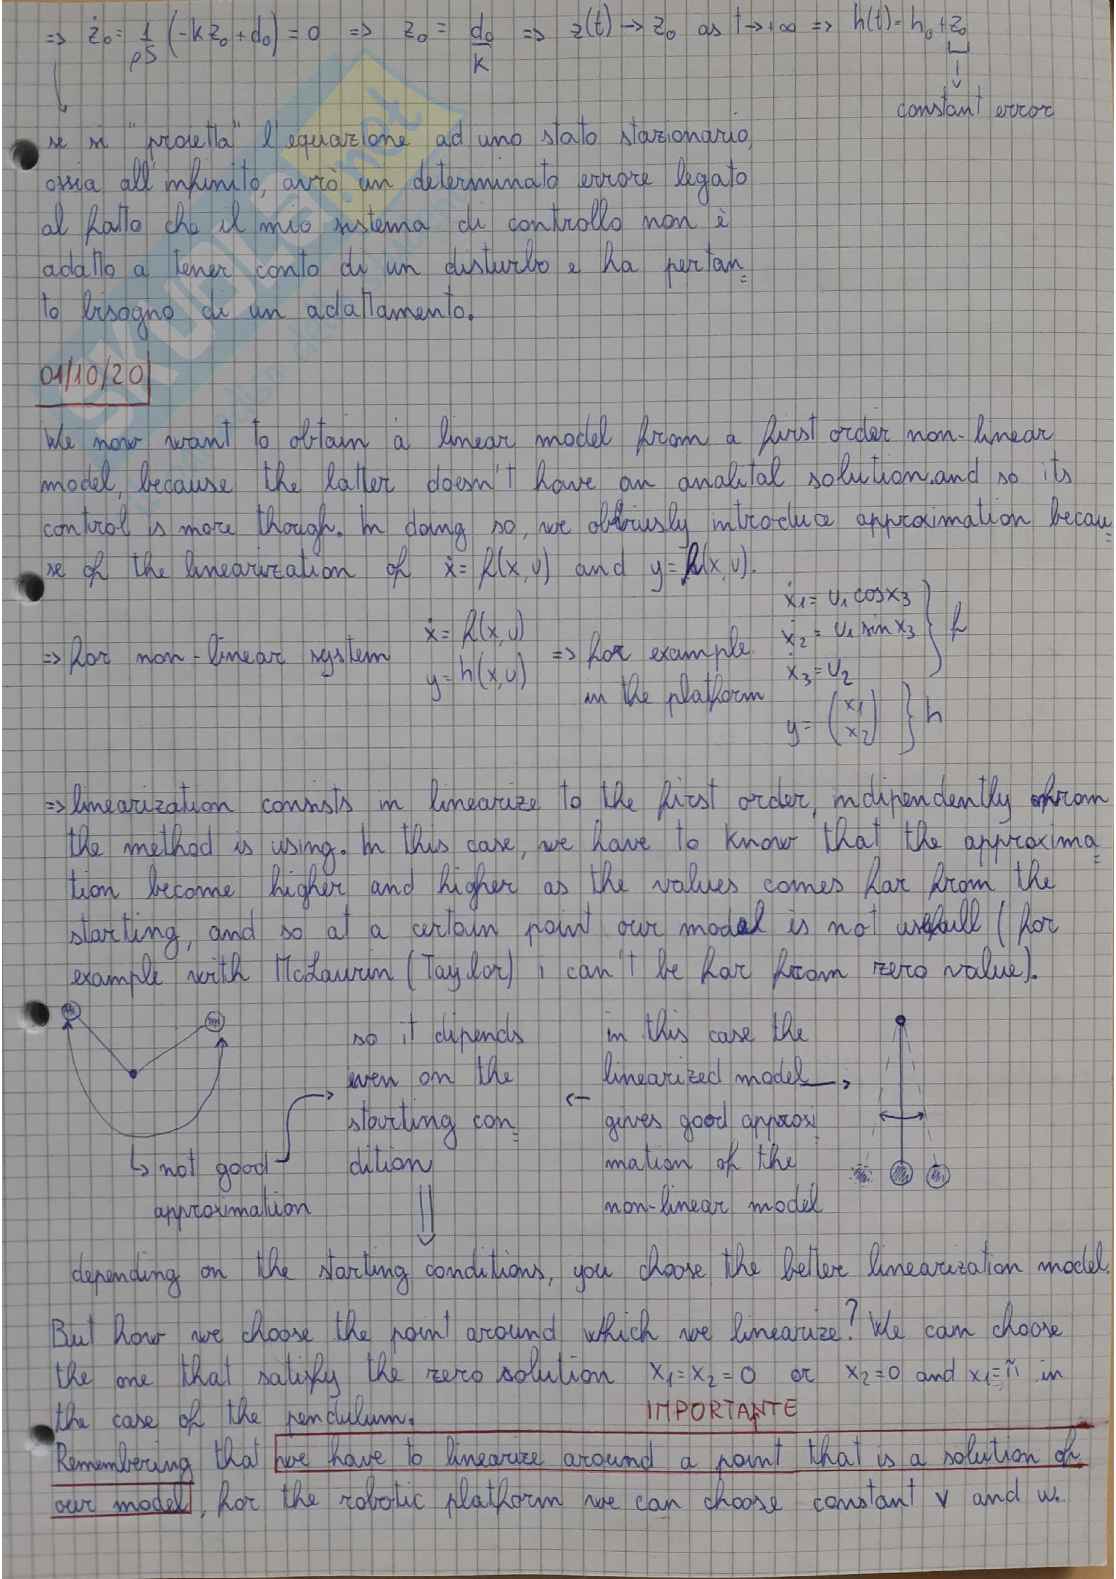 => ż₀ = 1/ρS (-k z₀ + d₀) = 0 => z₀ = d₀/k => z(t) → z₀ as t → +∞ => h(t) = h₀ + z₀
constant error
se si "proietta" l'equazione ad uno stato stazionario,
ossia all'infinito, avrò un determinato errore legato
al fatto che il mio sistema di controllo non è
adatto a tener conto di un disturbo e ha pertan=
to bisogno di un adattamento.
01/10/20
We now want to obtain a linear model from a first order non-linear
model, because the latter doesn't have an analital solution, and so its
control is more though. In doing so, we obviusly introduce approximation becau=
se of the linearization of ẋ = f(x,u) and y = h(x,u).
=> for non-linear system
ẋ = f(x,u)
y = h(x,u)
=> for example
in the platform
ẋ₁ = u₁ cos x₃
ẋ₂ = u₁ sin x₃ } f
ẋ₃ = u₂
y = (x₁ x₂) } h
=> linearization consists in linearize to the first order, indipendently from
the method is using. In this case, we have to know that the approxima=
tion become higher and higher as the values comes far from the
starting, and so at a certain point our model is not usefull (for
example with McLaurin (Taylor) i can't be far from zero value).
not good
approximation
so it dipends
even on the
starting con=
dition
in this case the
linearized model
gives good approxi
mation of the
non-linear model
depending on the starting conditions, you choose the better linearization model.
But how we choose the point around which we linearize? We can choose
the one that satisfy the zero solution x₁ = x₂ = 0 or x₂ = 0 and x₁ = π in
the case of the pendulum.
IMPORTANTE
Remembering that we have to linearize around a point that is a solution of
our model, for the robotic platform we can choose constant v and w.